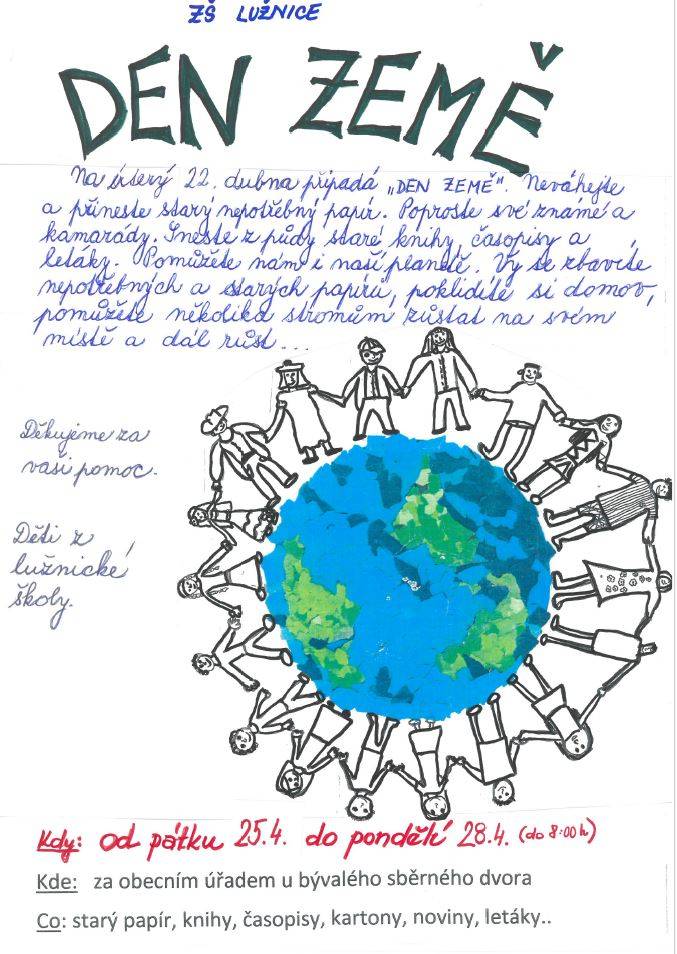 ZŠ LUŽNICE
DEN ZEMĚ
Na úterý 22. dubna připadá „DEN ZEMĚ“. Neváhejte
a přineste starý nepotřebný papír. Poproste své známé a
kamarády. Sneste z půdy staré knihy, časopisy a
letáky. Pomůžete nám i naší planetě. Vy se zbavíte
nepotřebných a starých papírů, poklidíte si domov,
pomůžete několika stromům zůstat na svém
místě a dál růst...
Děkujeme za
vaši pomoc.
Děti z
lužnické
školy.
Kdy: od pátku 25.4. do pondělí 28.4. (do 8:00 h)
Kde: za obecním úřadem u bývalého sběrného dvora
Co: starý papír, knihy, časopisy, kartony, noviny, letáky..